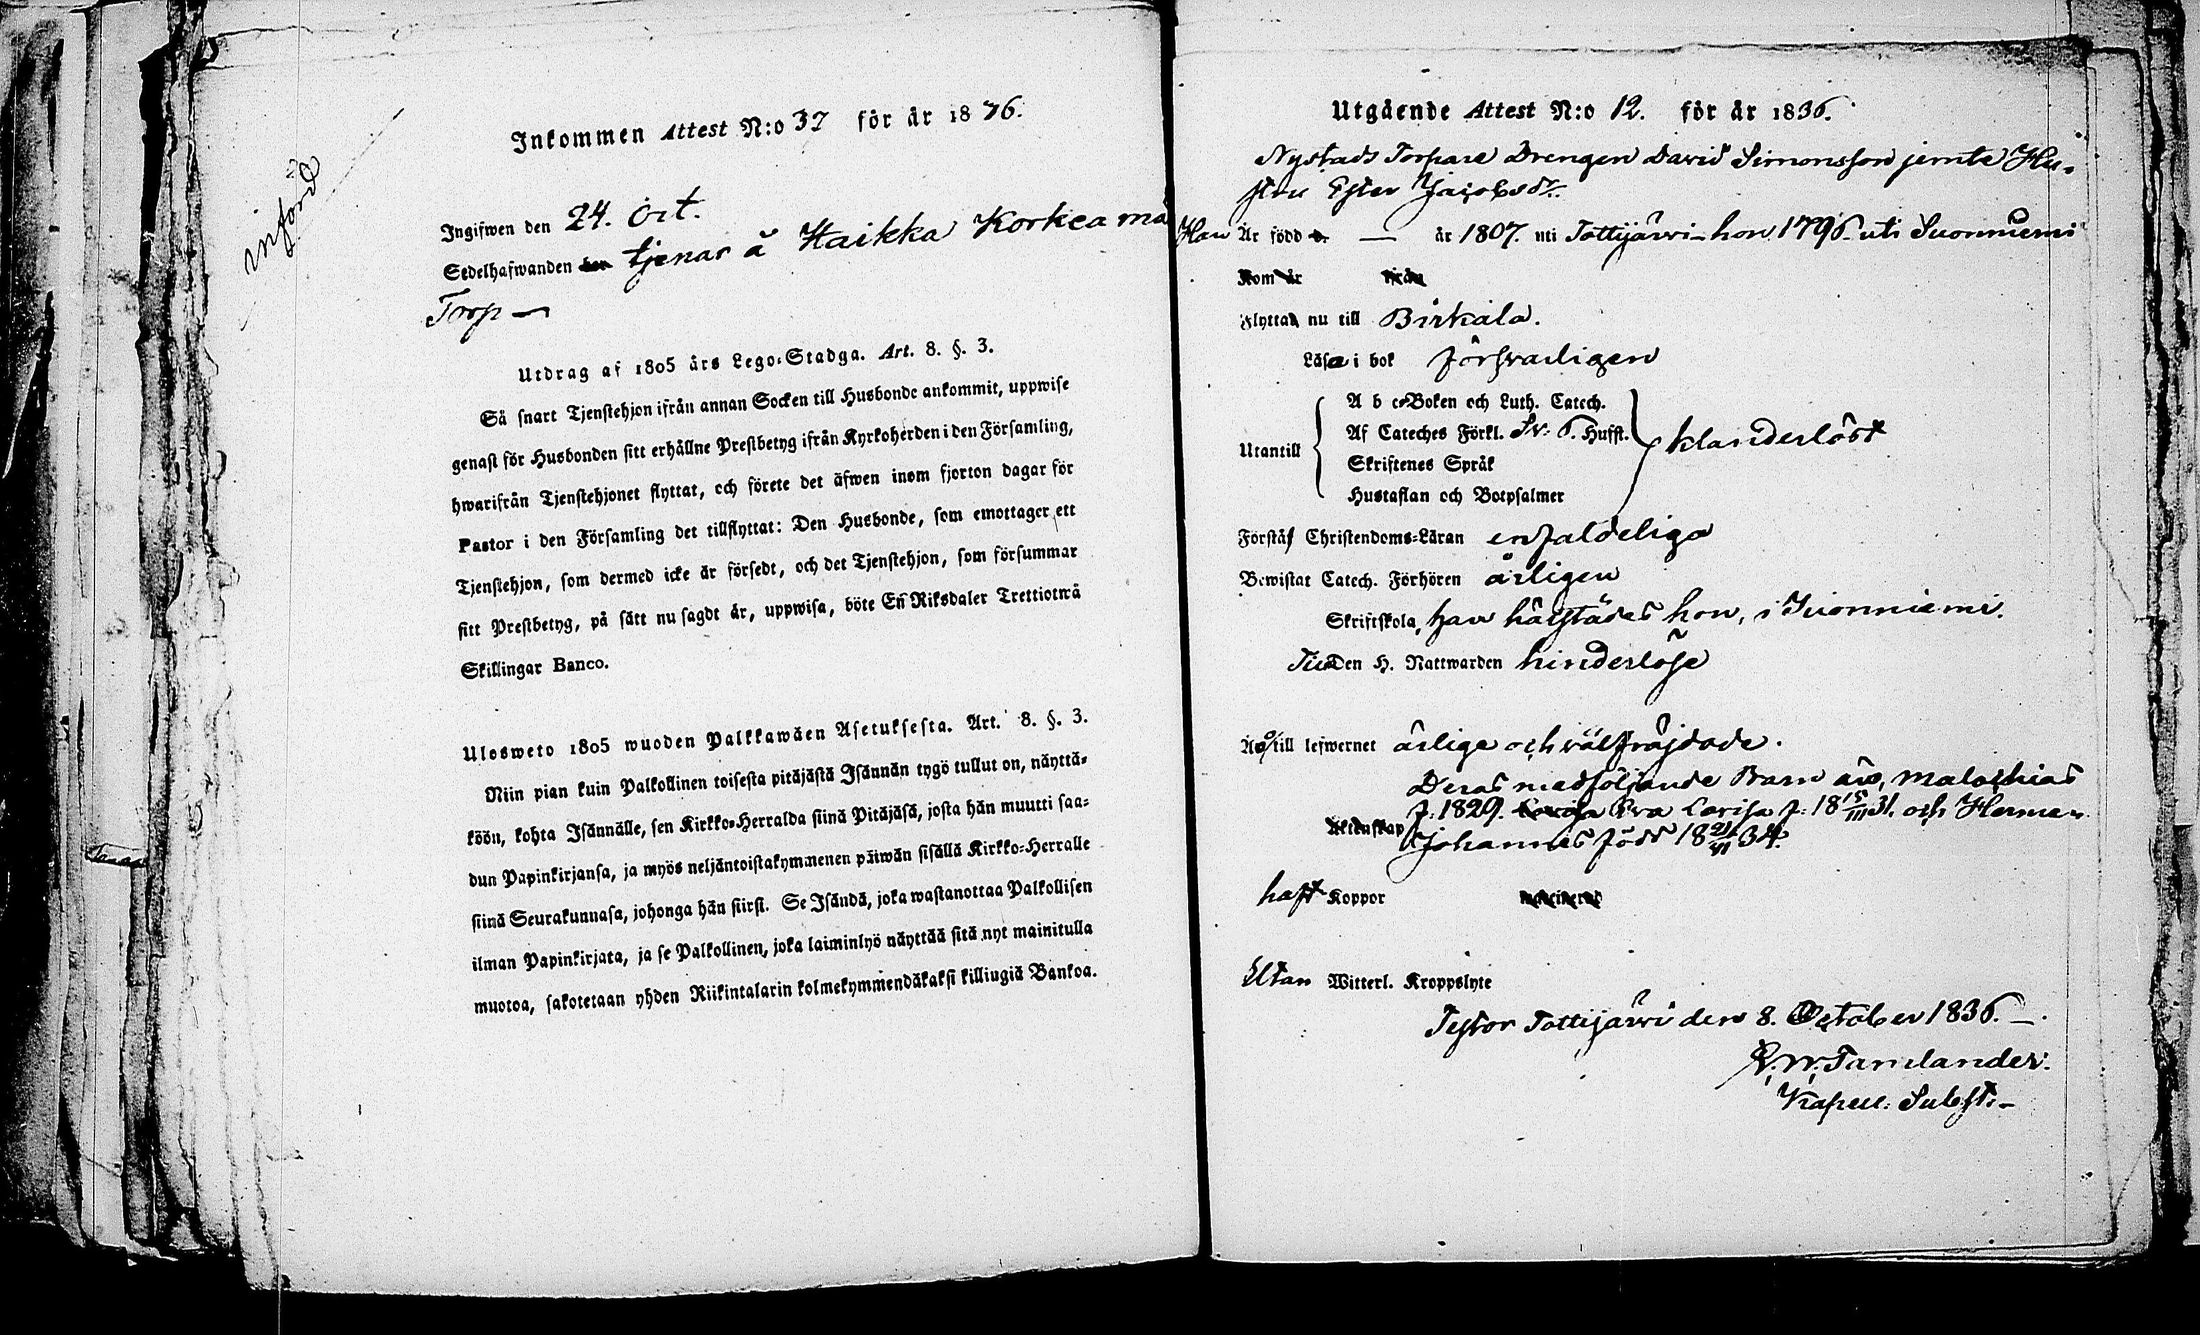 införd
Inkommen Attest N:o 37 för år 1836.
Ingifwen den 24. Oct.
Sedelhafwanden har tjenar å Haikka Korkea mä
Torp —
Utdrag af 1805 års Lego-Stadga. Art. 8. §. 3.
Så snart Tjenstehjon ifrån annan Socken till Husbonde ankommit, uppwise
genast för Husbonden sitt erhållne Prestbetyg ifrån Kyrkoherden i den Församling,
hwarifrån Tjenstehjonet flyttat, och förete det äfwen inom fjorton dagar för
Pastor i den Församling det tillflyttat: Den Husbonde, som emottager ett
Tjenstehjon, som dermed icke är försedt, och det Tjenstehjon, som försummar
sitt Prestbetyg, på sätt nu sagdt är, uppwisa, böte En Riksdaler Trettiotwå
Skillingar Banco.
Ulosweto 1805 wuoden Palkkawäen Asetuksesta. Art. 8. §. 3.
Niin pian kuin Palkollinen toisesta pitäjästä Isännän tygö tullut on, näyttä-
köön, kohta Isännälle, sen Kirkko-Herralda siinä Pitäjäsä, josta hän muutti saa-
dun Papinkirjansa, ja myös neljäntoistakymmenen päiwän sisällä Kirkko-Herralle
siinä Seurakunnasa, johonga hän siirsi. Se Isändä, joka wastanottaa Palkollisen
ilman Papinkirjata, ja se Palkollinen, joka laiminlyö näyttää sitä nyt mainitulla
muotoa, sakotetaan yhden Riikintalarin kolmekymmendäkaksi killingiä Bankoa.
Utgående Attest N:o 12. för år 1836.
Nystads Torpare Drengen David Simonsson jemte Hu-
stru Ester Jacobsdr.
Han Är född d. — år 1807. uti Tottijärwi – hon 1796. uti Suonniemi
Kom år ifrån
Flyttar nu till Birkala.
Läsa i bok försvarligen
A b c-Boken och Luth. Catech.
Af Cateches Förkl. Sv: 6. Hufst.
Utantill klanderlöst
Skriftenes Språk
Hustaflan och Botpsalmer
Förstå Christendoms-Läran enfaldeliga
Bewistat Catech. Förhören årligen
Skriftskola, han härstädes hon, i Suonniemi.
Till Den H. Nattwarden hinderlöse
Äro till lefwernet ärlige och välfräjdade.
Deras medföljande Barn äro, Malachias
f. 1829. Eva Lovisa f. 18 15/III 31. och Herman
Äktenskap Johannes född 18 21/VI 34.
haft Koppor
Utan Witterl. Kroppslyte
Testor Tottijärwi den 8. October 1836. —
Tamlander.
Kapell: Subst: –